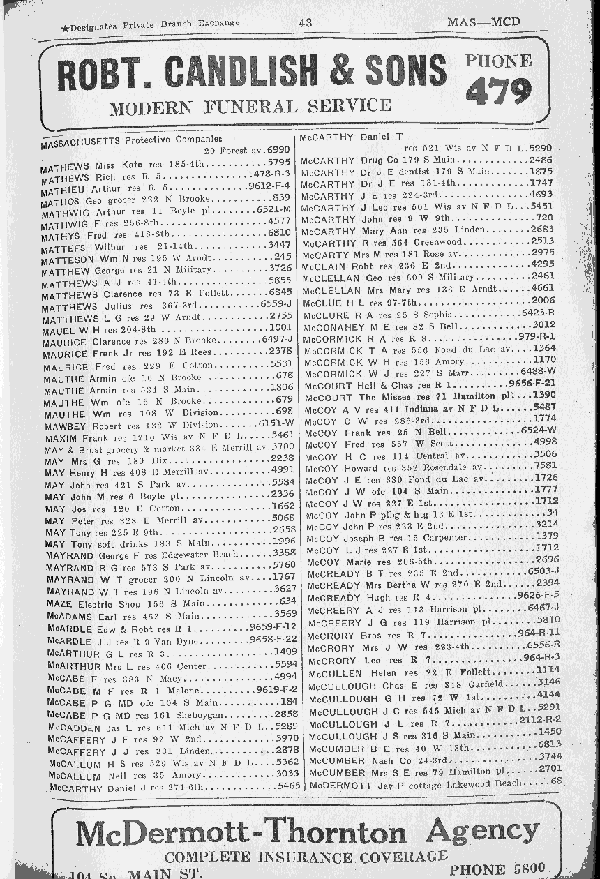 ★Designates Private Branch Exchange 43 MAS—MCD
ROBT. CANDLISH & SONS PHONE 479
MODERN FUNERAL SERVICE
MASSACHUSETTS Protective Companies
20 Forest av.6990
MATHEWS Miss Kate res 185-4th 5795
MATHEWS Rich res R 5 478-R-3
MATHIEU Arthur res R 5 9612-F-4
MATHOS Geo grocer 222 N Brooke 839
MATHWIG Arthur res 11 Boyle pl 6521-M
MATHWIG F res 256-8th 4577
MATHYS Fred res 416-8th 6810
MATTEFS Wilbur res 21-14th 3447
MATTESON Wm N res 195 W Arndt 245
MATTHEW George res 21 N Military 3726
MATTHEWS A J res 5655
MATTHEWS Clarence res 73 E Follett 6345
MATTHEWS Julius res 367-3rd 6559-J
MATTHEWS L G res 29 W Arndt 2755
MAUEL W H res 204-8th 1001
MAURICE Clarence res 280 N Brooke 6497-J
MAURICE Frank Jr res 192 E Rees 2378
MAURICE Fred res 229 E Cotton
MAUTHE Armin ofc 16 N Brooke 678
MAUTHE Armin res 531 S Main
MAUTHE Wm ofc 16 N Brooke 679
MAUTHE Wm res 108 W Division 698
MAWBEY Robert res 132 W Division 6151-W
MAXIM Frank res 1710 Wis av N F D L 5461
MAY & Brost grocery & market E Merrill av 3700
MAY Mrs G res 180 Dixie 2238
MAY Henry H res 408 E Merrill av 4991
MAY John res 421 S Park av 5584
MAY John M res 6 Boyle pl 2356
MAY Jos res 120 E Cotton 1662
MAY Peter res 328 E Merrill av 5068
MAY Tony res 225 E 9th 2658
MAY Tony soft drinks 183 S Main 1996
MAYRAND George F res Edgewater Beach 3358
MAYRAND R G res 573 S Park av 5760
MAYRAND W T grocer 200 N Lincoln av 1767
MAYRAND W T res 196 N Lincoln av 3627
MAZE Electric Shop 158 S Main 634
McADAMS Earl res 452 S Main 3569
McARDLE Edw & Robt res R 1 9659-F-12
McARDLE J L res R 3 Van Dyne 9658-F-22
McARTHUR G L res R 3 1409
McARTHUR Mrs L res 406 Center 5594
McCABE F res 393 N Macy 4994
McCABE M F res R 1 Malone 9619-F-2
McCABE P G MD ofc 104 S Main 184
McCABE P G MD res 161 Sheboygan 2858
McCADDEN Jas L res 611 Mich av N F D L 5285
McCAFFERY J F res 92 W 2nd 5970
McCAFFERY J J res 201 Linden 2878
McCALLUM H S res 529 Wis av N F D L 5362
McCALLUM Nell res 35 Amory 3033
McCARTHY Daniel J res 271-6th 5465
McCARTHY Daniel T
res 521 Wis av N F D L.5290
McCARTHY Drug Co 179 S Main 2486
McCARTHY Dr J E dentist 179 S Main 1875
McCARTHY Dr J E res 131-4th 1747
McCARTHY J E res 224-3rd 4693
McCARTHY J Leo res 501 Wis av N F D L 5451
McCARTHY John res 9 W 9th 720
McCARTHY Mary Ann res 235 Linden 2683
McCARTHY R res 364 Greenwood 2513
McCARTY Mrs M res 181 Rose av 2975
McCLAIN Robt res 236 E 2nd 4295
McCLELLAN Geo res 600 S Military 2461
McCLELLAN Mrs Mary res 133 E Arndt 4661
McCLUE H L res 97-7th 2006
McCLURE R A res 25 S Sophia 5425-R
McCONAHEY M E res 82 S Bell 3012
McCORMICK H A res R 3 979-R-1
McCORMICK T A res 566 Fond du Lac av 1364
McCORMICK W H res 169 Amory 1170
McCORMICK W J res 227 S Marr 6488-W
McCOURT Hell & Chas res R 1 9656-F-21
McCOURT The Misses res 71 Hamilton pl 1390
McCOY A V res 411 Indiana av N F D L 5487
McCOY C W res 286-3rd 1774
McCOY Frank res 26 N Bell 6524-W
McCOY Fred res 567 W Scott 4998
McCOY H C res 114 Central av 3506
McCOY Howard res 352 Rosendale av 7581
McCOY J E res 330 Fond du Lac av 1726
McCOY J W ofc 104 S Main 1777
McCOY J W res 237 E 1st 1712
McCOY John P plbg & htg 13 E 1st 34
McCOY John P res 233 E 2nd 3214
McCOY Joseph B res 15 Carpenter 1379
McCOY L J res 227 E 1st 3712
McCOY Marie res 206-5th 2696
McCREADY B T res 235 E 2nd 6503-J
McCREADY Mrs Bertha W res 270 E 2nd 2394
McCREADY Hugh res R 4 9626-F-5
McCREERY A J res 113 Harrison pl 6467-J
McCREERY J G res 119 Harrison pl 5810
McCRORY Bros res R 7 964-R-11
McCRORY Mrs J W res 223-4th 6556-R
McCRORY Leo res R 7 964-R-3
McCULLEN Helen res 22 E Follett 1114
McCULLOUGH Chas E res 318 Garfield 3146
McCULLOUGH G H res 72 W 1st 4144
McCULLOUGH J C res 545 Mich av N F D L 5291
McCULLOUGH J L res R 7 2112-R-2
McCULLOUGH J S res 316 S Main 1450
McCUMBER B E res 40 W 13th 6813
McCUMBER Nash Co 24-3rd 3744
McCUMBER Mrs S E res 79 Hamilton pl 2701
McDERMOTT Jay P cottage Lakewood Beach 68
McDermott-Thornton Agency
COMPLETE INSURANCE COVERAGE
104 So. MAIN ST. PHONE 5800